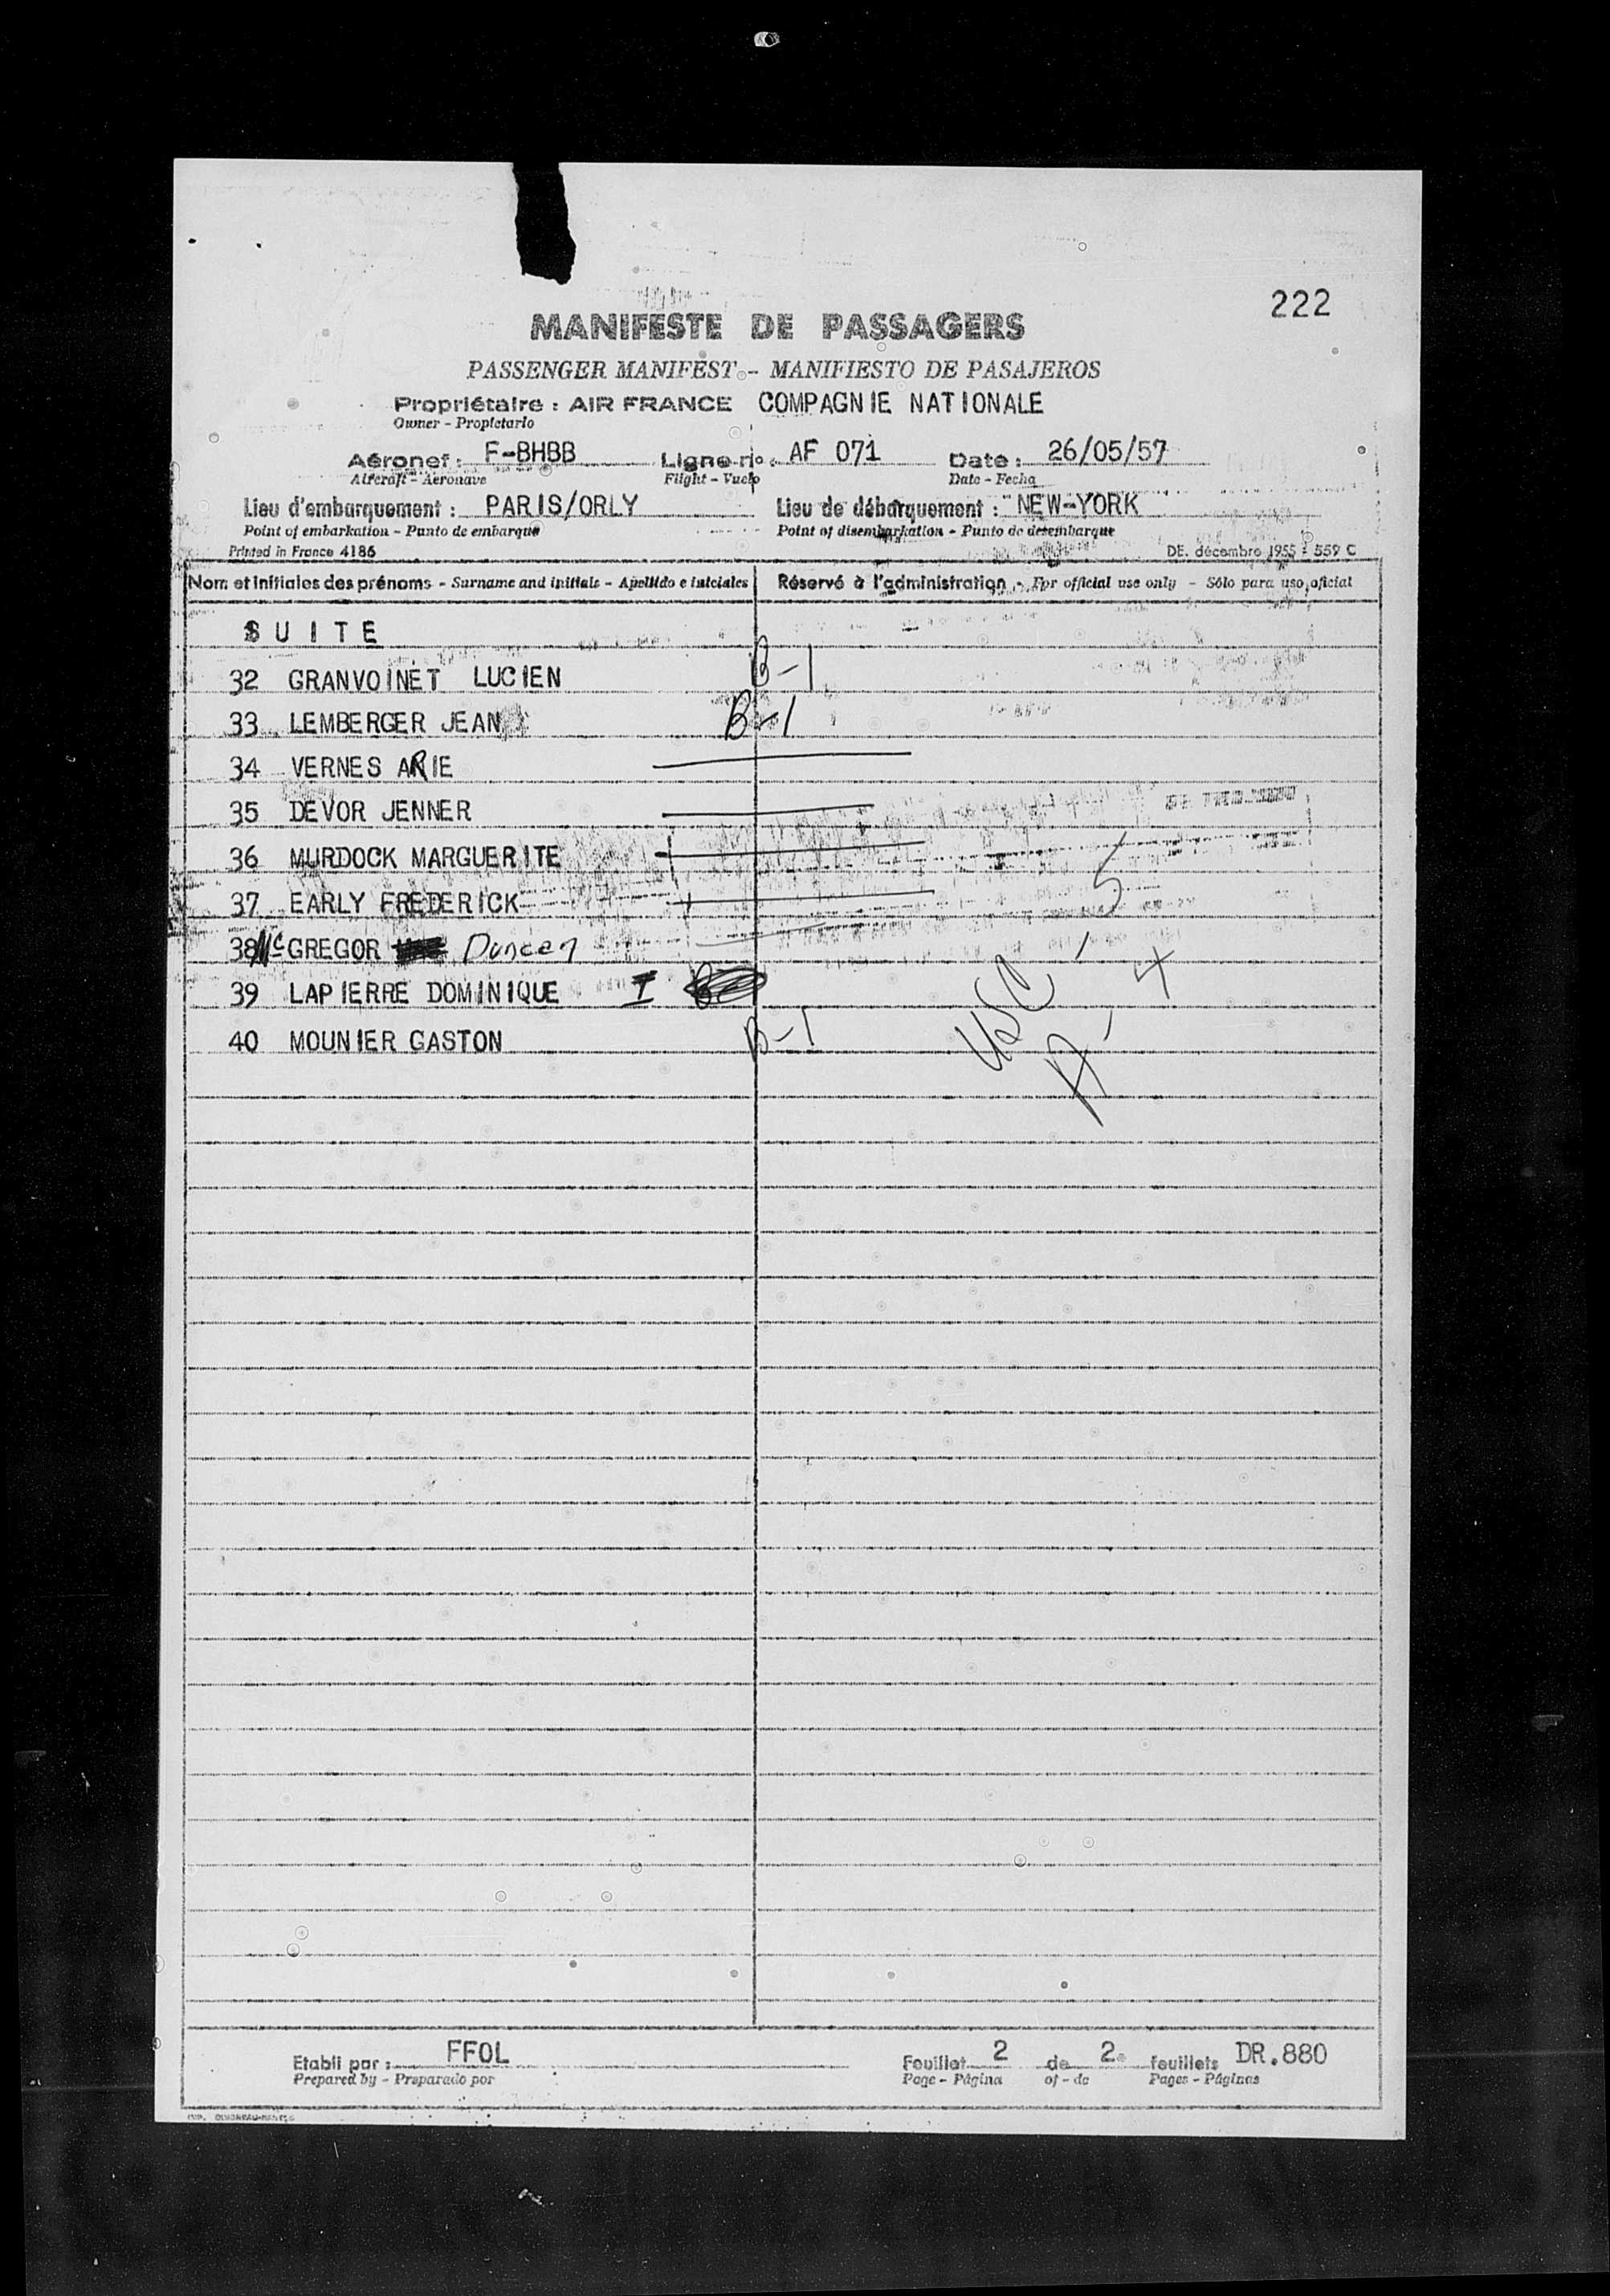 222
MANIFESTE DE PASSAGERS
PASSENGER MANIFEST - MANIFIESTO DE PASAJEROS
Propriétaire : AIR FRANCE COMPAGNIE NATIONALE
Owner - Propietario
Aéronef : F-BHBB Ligne nº : AF 071 Date : 26/05/57
Aircraft - Aeronave Flight - Vuelo Date - Fecha
Lieu d'embarquement : PARIS/ORLY Lieu de débarquement : NEW-YORK
Point of embarkation - Punto de embarque Point of disembarkation - Punto de desembarque
Printed in France 4186 DE. décembre 1955 - 559 C
Nom et initiales des prénoms - Surname and initials - Apellido e iniciales Réservé à l'administration - For official use only - Sólo para uso oficial
SUITE
32 GRANVOINET LUCIEN B-1
33 LEMBERGER JEAN B-1
34 VERNES ARIE
35 DEVOR JENNER
36 MURDOCK MARGUERITE
37 EARLY FREDERICK
38 Mc GREGOR Duncan
39 LAPIERRE DOMINIQUE I
40 MOUNIER GASTON B-1
USC - 5
A - 4
Etabli par : FFOL Feuillet 2 de 2 feuillets DR.880
Prepared by - Preparado por Page - Página of - de Pages - Páginas